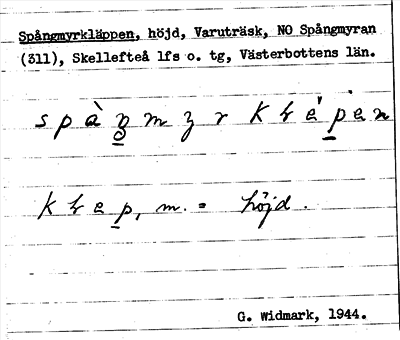 Spångmyrkläppen, höjd, Varuträsk, NO Spångmyran
(311), Skellefteå lfs o. tg, Västerbottens län.
m. = höjd.
G. Widmark, 1944.